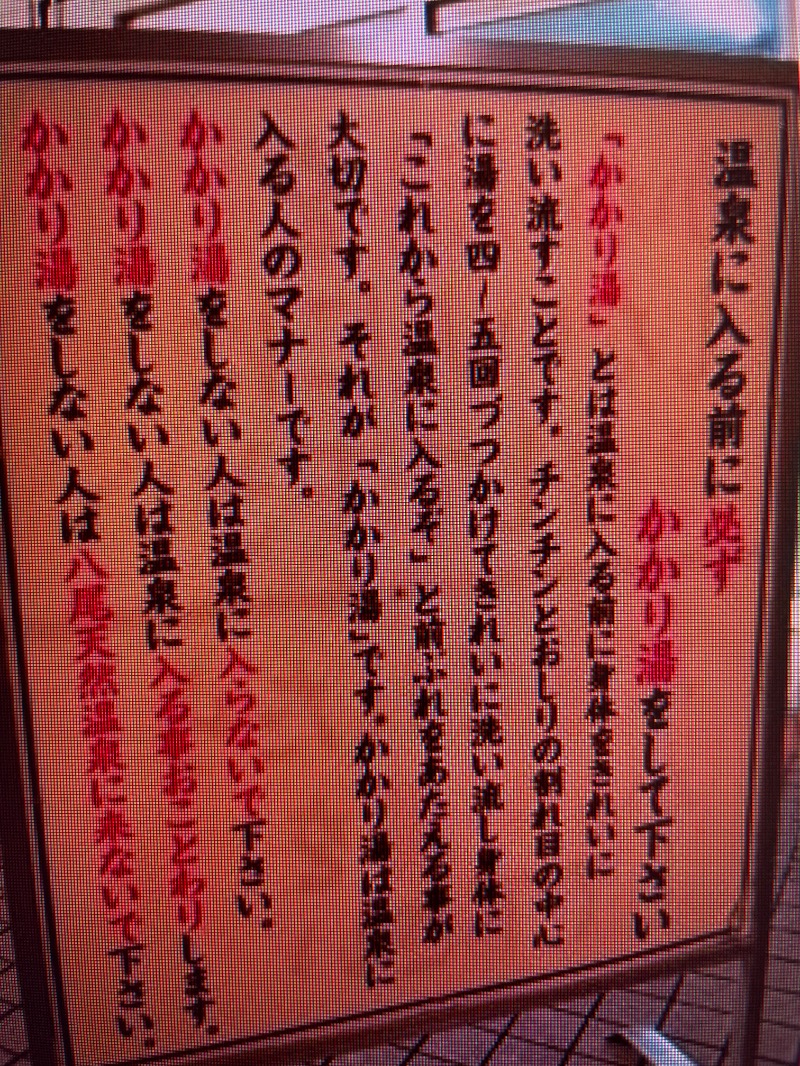 温泉に入る前に必ず
かかり湯をして下さい
「かかり湯」とは温泉に入る前に身体をきれいに
洗い流すことです。チンチンとおしりの割れ目の中心
に湯を四～五回づつかけてきれいに洗い流し身体に
「これから温泉に入るぞ」と前ぶれをあたえる事が
大切です。それが「かかり湯」です。かかり湯は温泉に
入る人のマナーです。
かかり湯をしない人は温泉に入らないで下さい。
かかり湯をしない人は温泉に入る事おことわりします。
かかり湯をしない人は八尾天然温泉に来ないで下さい。